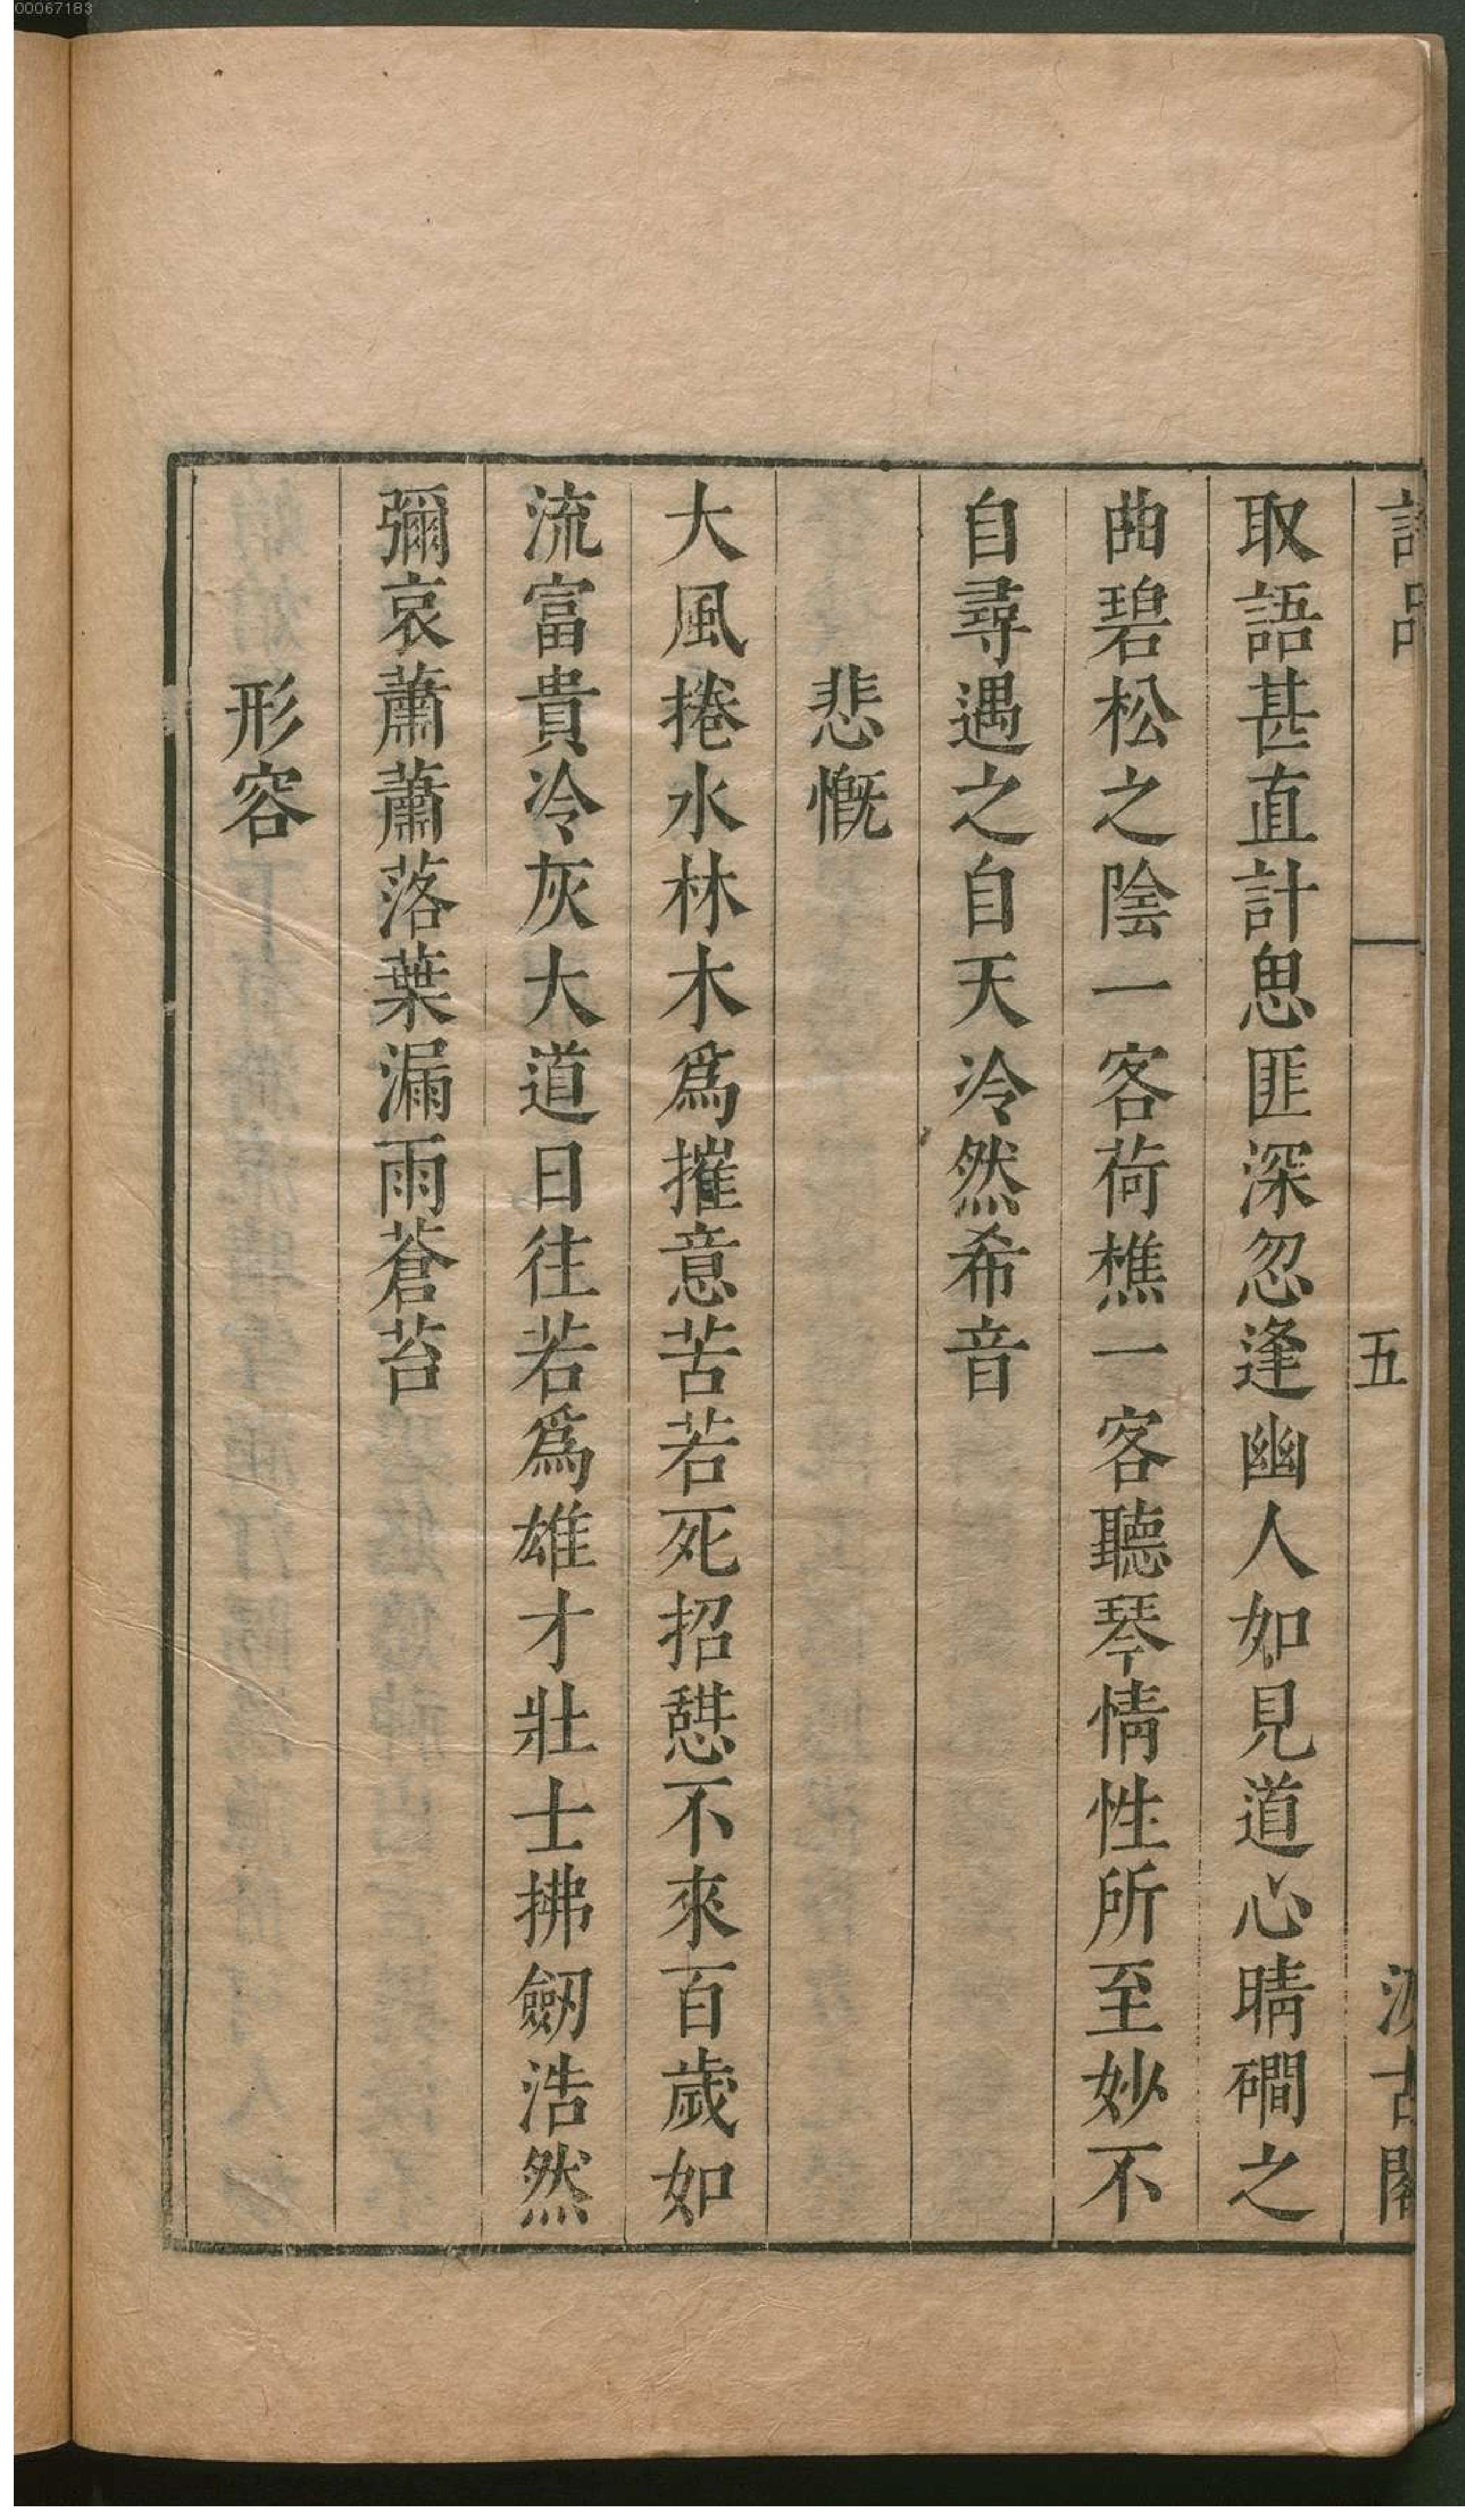 00067183
詩品
五
汲古閣
取語甚直計思匪深忽逢幽人如見道心晴磵之
曲碧松之陰一客荷樵一客聽琴情性所至妙不
自尋遇之自天冷然希音
悲慨
大風捲水林木爲摧意苦若死招憇不來百歲如
流富貴冷灰大道日往若爲雄才壯士拂劒浩然
彌哀蕭蕭落葉漏雨蒼苔
形容